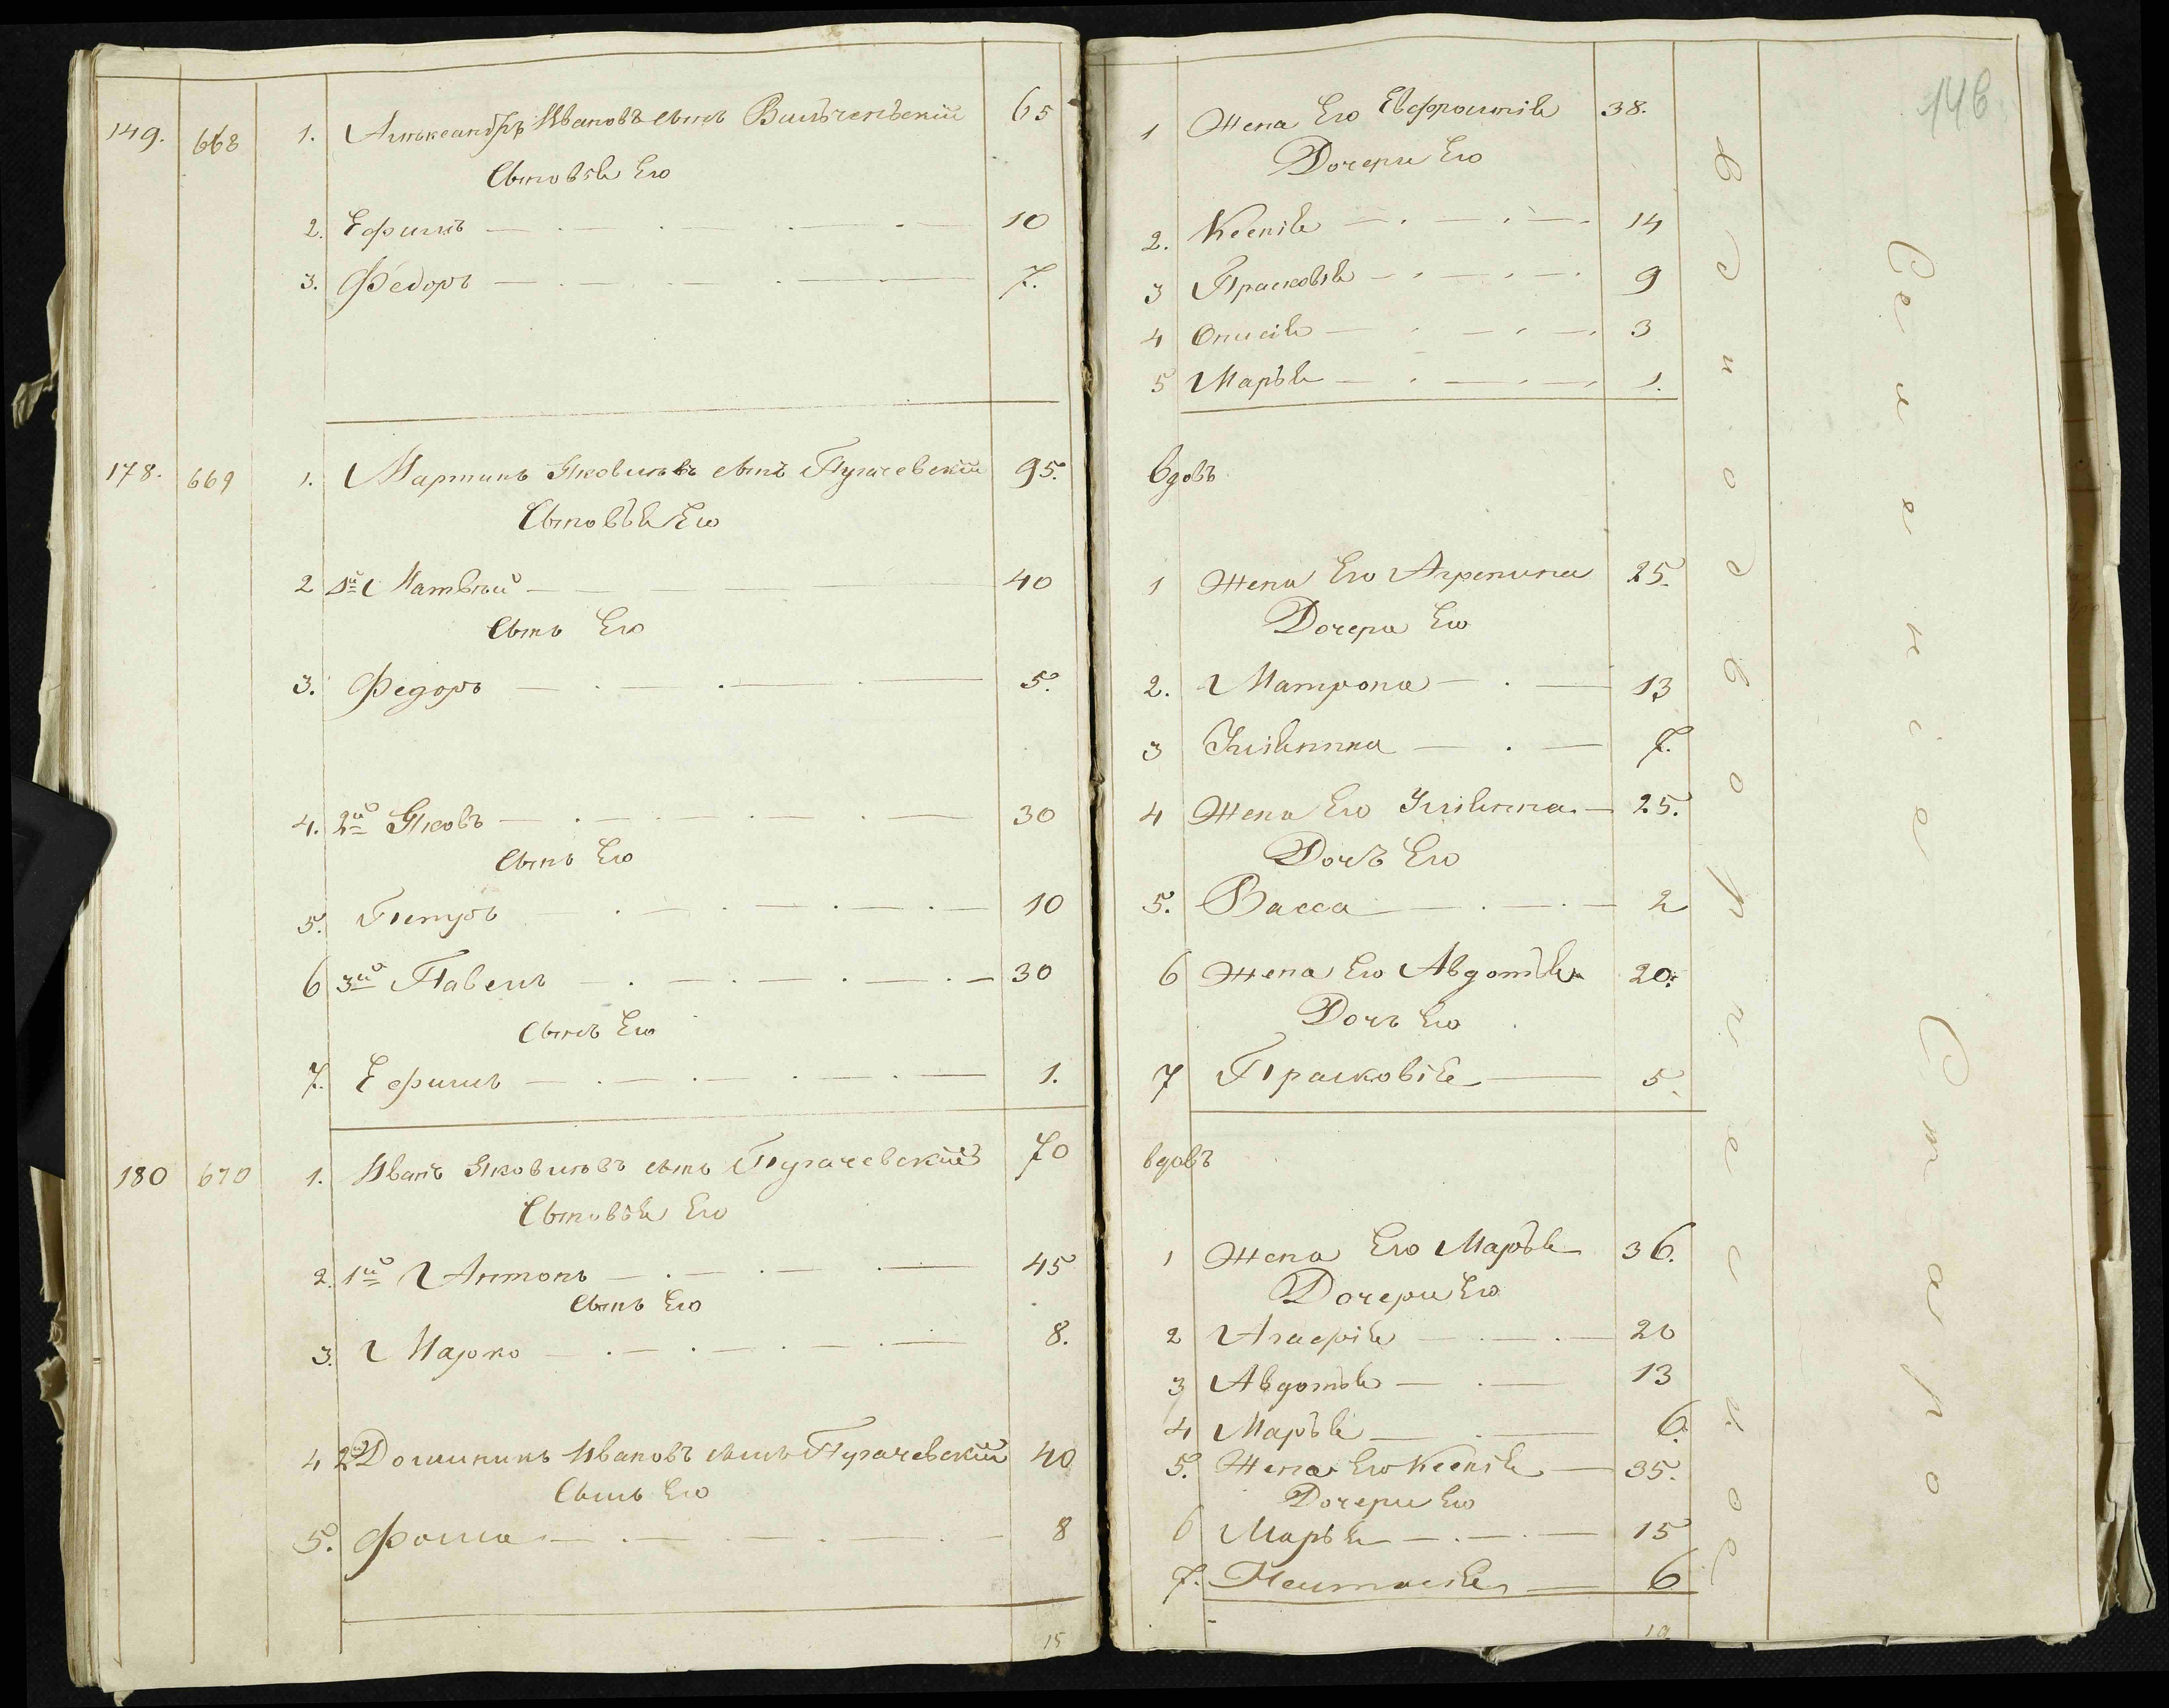 149. 668 1. Алѣксандръ Ивановъ сынъ Вильченьскій 65
Сыновья Его
2. Ефимъ 10
3. Федоръ 7.
178. 669 1. Мартинъ Яковлевъ сынъ Пугачевскій 95.
Сыновья Его
2 1й Матвѣй 40
Сынъ Его
3. Федоръ 5.
4. 2й Яковъ 30
Сынъ Его
5. Петръ 10
6 3й Павелъ 30
Сынъ Его
7. Ефимъ 1.
180 670 1. Иванъ Яковлевъ сынъ Пугачевскій 70
Сыновья Его
2. 1й Антонъ 45
Сынъ Его
3. Марко 8.
4 2й Доминикъ Ивановъ сынъ Пугачевскій 40
Сынъ Его
5. Фома 8
15
146.
1 Жена Его Евфросинія 38.
Дочери Его
2. Ксенія 14
3 Прасковія 9
4 Онисія 3
5 Марья 1.
вдовъ
1 Жена Его Агрепина 25.
Дочери Его
2. Матрона 13
3 Уліянна 7.
4 Жена Его Уліянна 25.
Дочь Его
5. Васса 2
6 Жена Его Авдотья 20.
Дочь Его
7 Прасковія 5.
вдовъ
1 Жена Его Марья 36.
Дочери Его
2 Агафія 20
3 Авдотья 13
4 Марья 6.
5. Жена Его Ксенія 35.
Дочери Его
6 Марья 15
7. Настасія 6
19
Селенія Старо